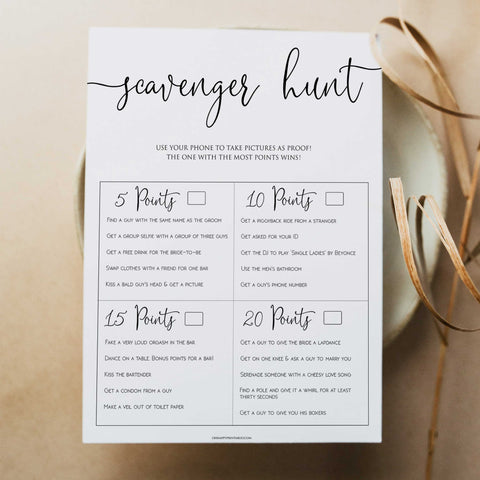 scavenger hunt
USE YOUR PHONE TO TAKE PICTURES AS PROOF!
THE ONE WITH THE MOST POINTS WINS!
5 Points
FIND A GUY WITH THE SAME NAME AS THE GROOM
GET A GROUP SELFIE WITH A GROUP OF THREE GUYS
GET A FREE DRINK FOR THE BRIDE-TO-BE
SWAP CLOTHES WITH A FRIEND FOR ONE BAR
KISS A BALD GUY'S HEAD & GET A PICTURE
10 Points
GET A PIGGYBACK RIDE FROM A STRANGER
GET ASKED FOR YOUR ID
GET THE DJ TO PLAY 'SINGLE LADIES' BY BEYONCE
USE THE MEN'S BATHROOM
GET A GUY'S PHONE NUMBER
15 Points
FAKE A VERY LOUD ORGASM IN THE BAR
DANCE ON A TABLE. BONUS POINTS FOR A BAR!
KISS THE BARTENDER
GET A CONDOM FROM A GUY
MAKE A VEIL OUT OF TOILET PAPER
20 Points
GET A GUY TO GIVE THE BRIDE A LAPDANCE
GET ON ONE KNEE & ASK A GUY TO MARRY YOU
SERENADE SOMEONE WITH A CHEESY LOVE SONG
FIND A POLE AND GIVE IT A WHIRL FOR AT LEAST
THIRTY SECONDS
GET A GUY TO GIVE YOU HIS BOXERS